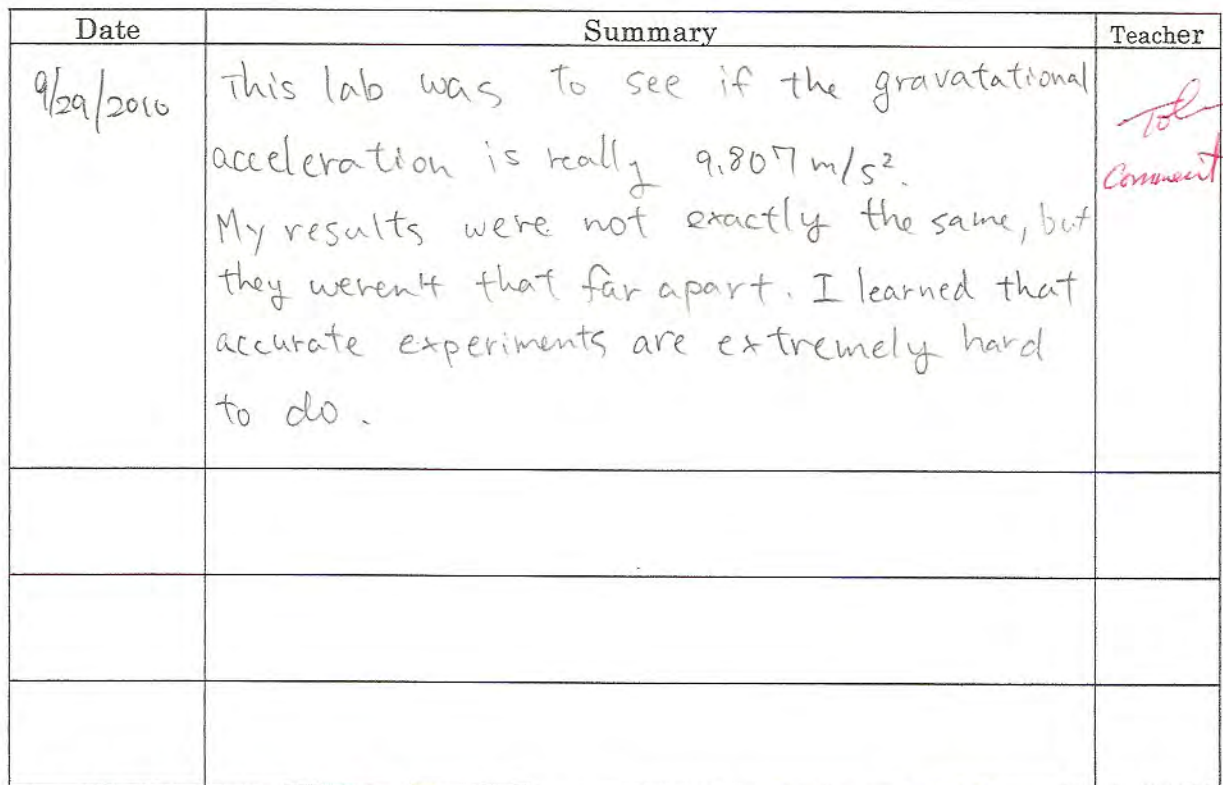 Date Summary Teacher
9/29/2010 This lab was to see if the gravatational
acceleration is really 9.807 m/s².
My results were not exactly the same, but
they weren't that far apart. I learned that
accurate experiments are extremely hard
to do.
Comment